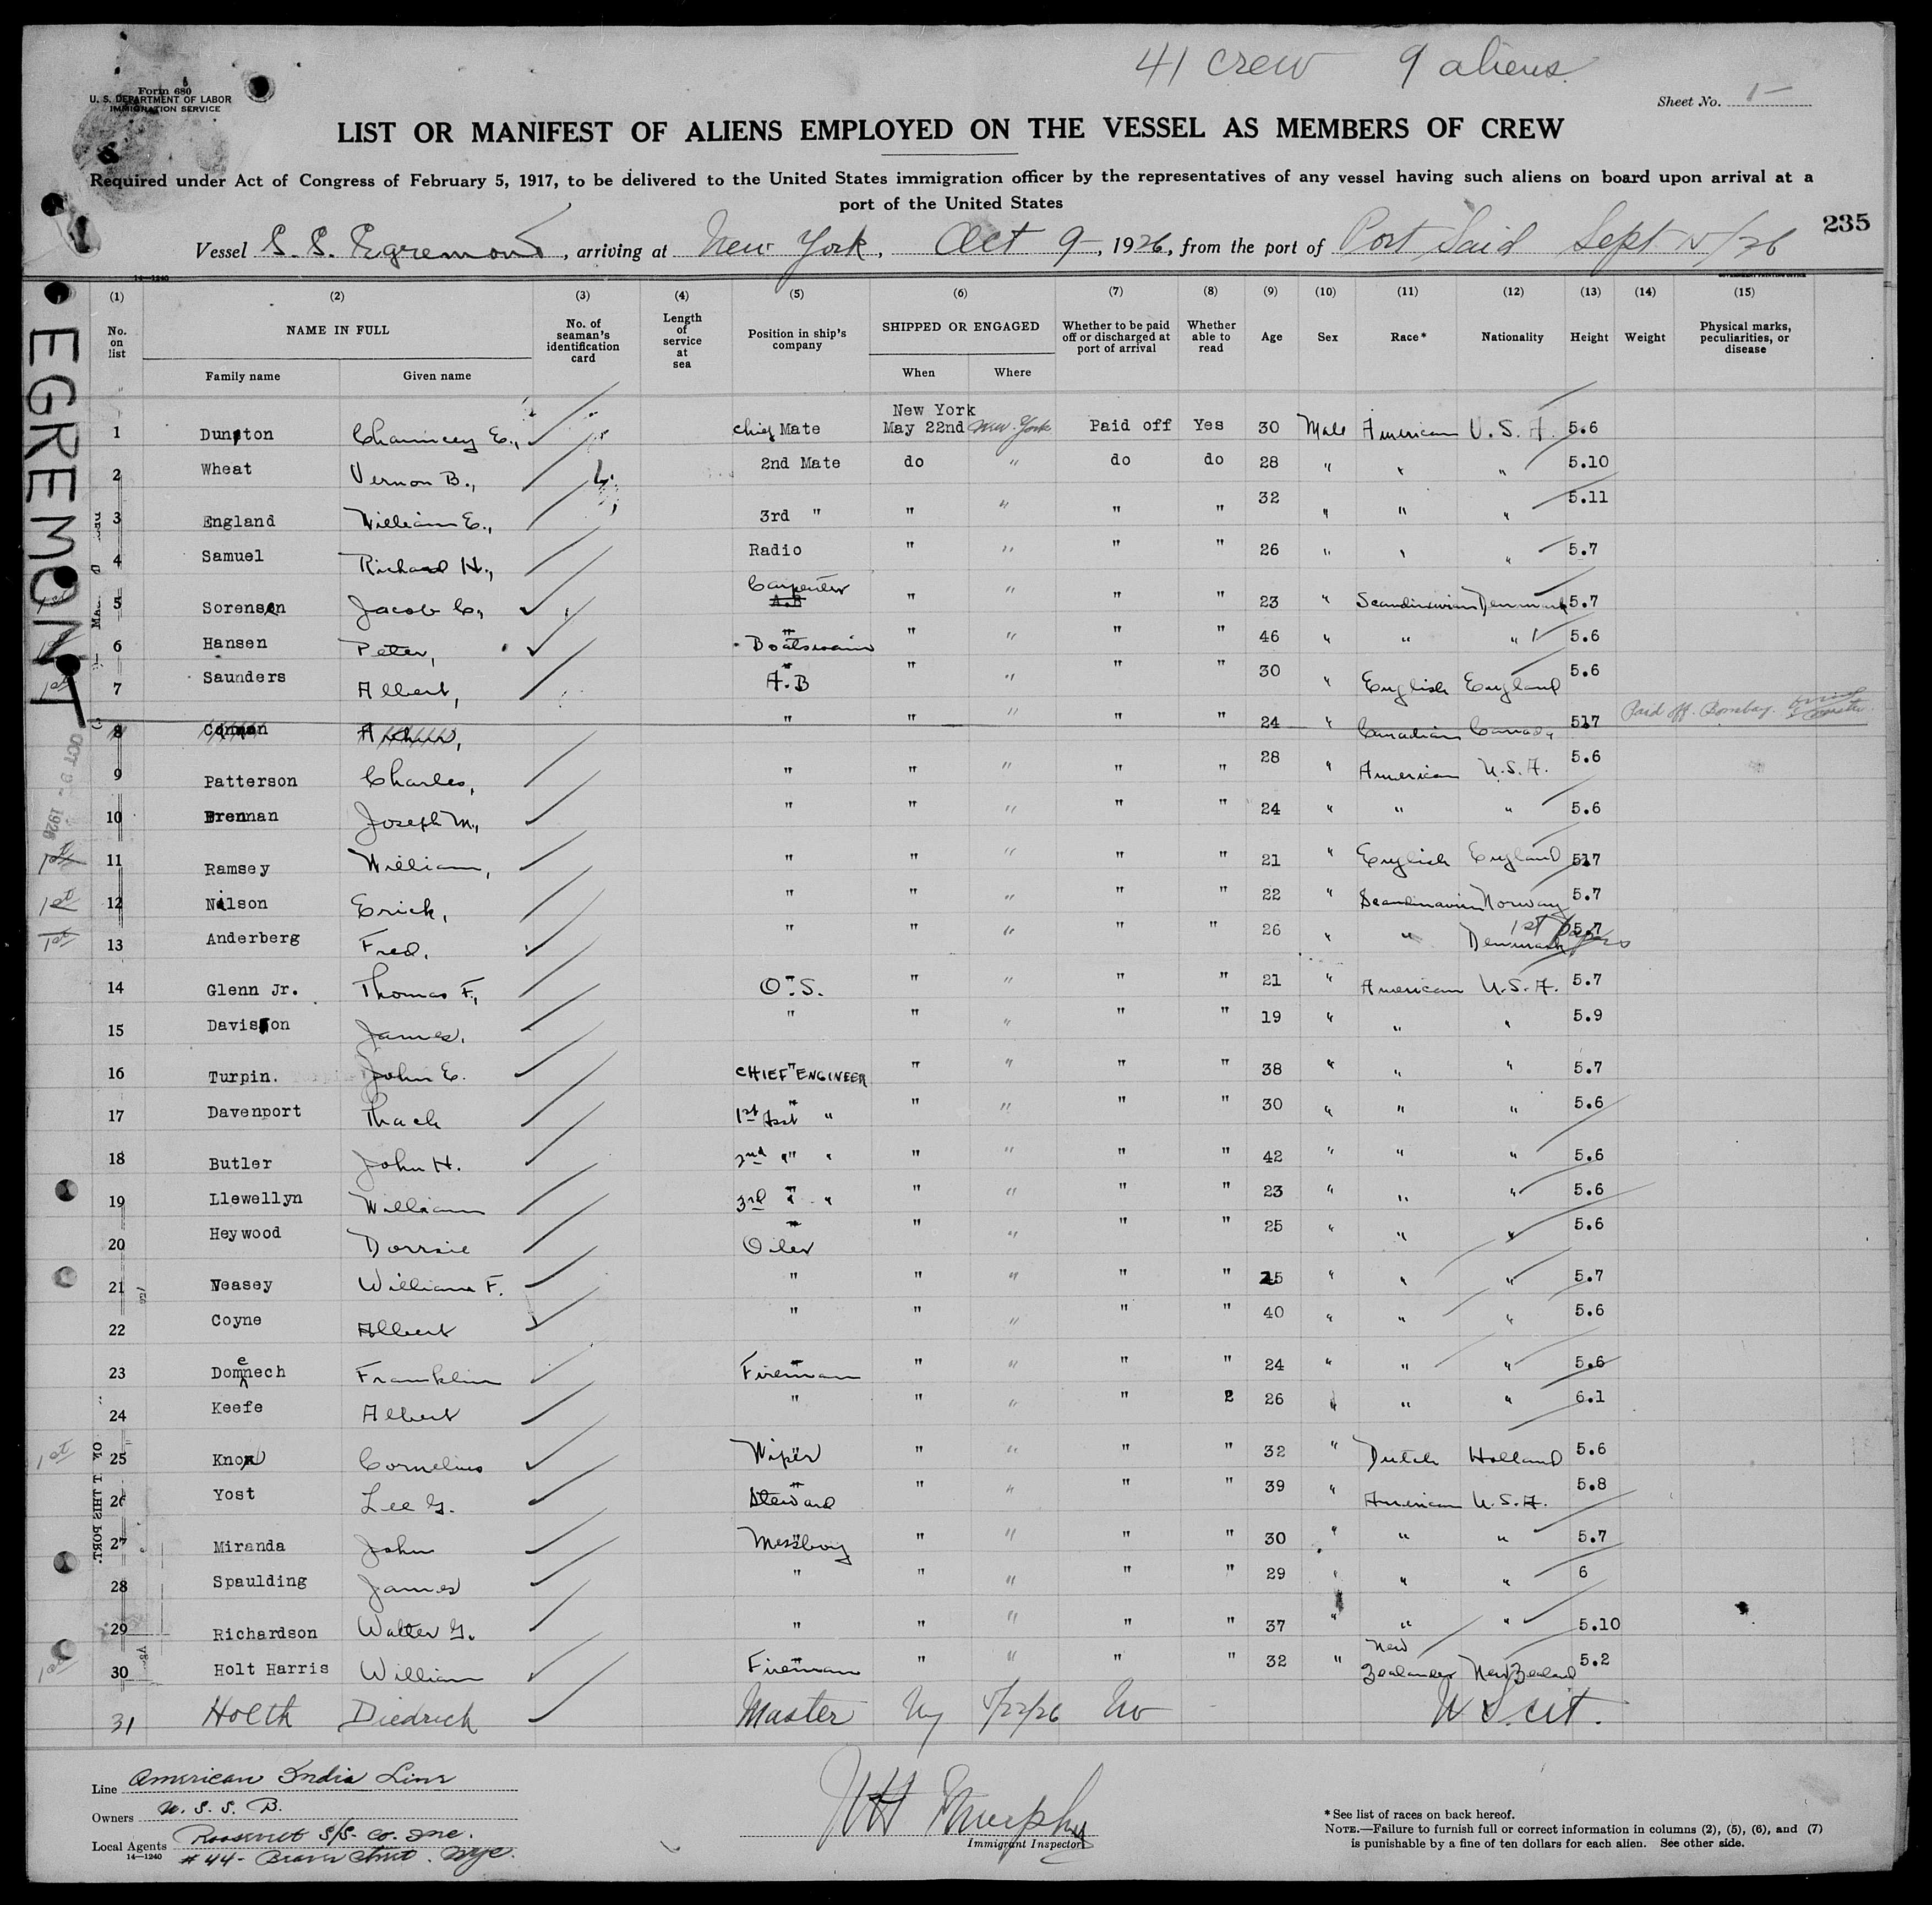 41 crew 9 aliens
Form 680
U. S. DEPARTMENT OF LABOR
IMMIGRATION SERVICE
Sheet No. 1-
LIST OR MANIFEST OF ALIENS EMPLOYED ON THE VESSEL AS MEMBERS OF CREW
Required under Act of Congress of February 5, 1917, to be delivered to the United States immigration officer by the representatives of any vessel having such aliens on board upon arrival at a
port of the United States
235
Vessel S. S. Egremont, arriving at New York, Oct 9-, 1926, from the port of Port Said Sept /26
14-1240
EGREMONT
(1) (2) (3) (4) (5) (6) (7) (8) (9) (10) (11) (12) (13) (14) (15)
No. on list NAME IN FULL No. of seaman's identification card Length of service at sea Position in ship's company SHIPPED OR ENGAGED Whether to be paid off or discharged at port of arrival Whether able to read Age Sex Race* Nationality Height Weight Physical marks, peculiarities, or disease
Family name Given name When Where
New York
1 Dunston Chauncey E., Chief Mate May 22nd New York Paid off Yes 30 Male American U. S. A. 5.6
2 Wheat Vernon B., 2nd Mate do " do do 28 " " " 5.10
3 England William E., 3rd " " " " " 32 " " " 5.11
4 Samuel Richard H., Radio " " " " 26 " " " 5.7
5 Sorensen Jacob C., Carpenter A.B " " " " 23 " Scandinavian Denmark 5.7
6 Hansen Peter, Boatswain " " " " 46 " " " 5.6
1st 7 Saunders Albert, A.B " " " " 30 " English England 5.6
8 " " " " " 24 " Canadian Canada 517 Paid off. Bombay.
9 Patterson Charles, " " " " " 28 " American U.S.A. 5.6
10 Brennan Joseph M., " " " " " 24 " " " 5.6
1st 11 Ramsey William, " " " " " 21 " English England 517
1st 12 Nilson Erick, " " " " " 22 " Scandinavian Norway 5.7
1st 13 Anderberg Fred, " " " " " 26 " " Denmark 1st papers 5.7
14 Glenn Jr. Thomas F., O.S. " " " " 21 " American U.S.A. 5.7
15 Davison James, " " " " " 19 " " " 5.9
16 Turpin. John E. CHIEF ENGINEER " " " " 38 " " " 5.7
17 Davenport Thach 1st Asst " " " " " 30 " " " 5.6
18 Butler John H. 2nd " " " " " " 42 " " " 5.6
19 Llewellyn William 3rd " " " " " " 23 " " " 5.6
20 Heywood Dorrsie Oiler " " " " 25 " " " 5.6
21 Veasey William F. " " " " " 25 " " " 5.7
22 Coyne Albert " " " " " 40 " " " 5.6
23 Domenech Franklin Fireman " " " " 24 " " " 5.6
24 Keefe Albert " " " " 2 26 " " " 6.1
1st 25 Cornelius Wiper " " " " 32 " Dutch Holland 5.6
26 Yost Lee G. Steward " " " " 39 " American U.S.A. 5.8
27 Miranda John Messboy " " " " 30 " " " 5.7
28 Spaulding James " " " " " 29 " " " 6
29 Richardson Walter G. " " " " " 37 " " " 5.10
1st 30 Holt Harris William Fireman " " " " 32 " New Zealander New Zealand 5.2
31 Holth Diedrich Master Ny 5/22/26 No - U S. cit.
OCT 9 - 1926
Line American India Line
Owners U. S. S. B.
Local Agents Roosevelt S/S. Co. Inc.
14-1240 # 44- Beaver Street. NYC.
Murphy
Immigrant Inspector
*See list of races on back hereof.
NOTE.—Failure to furnish full or correct information in columns (2), (5), (6), and (7)
is punishable by a fine of ten dollars for each alien. See other side.